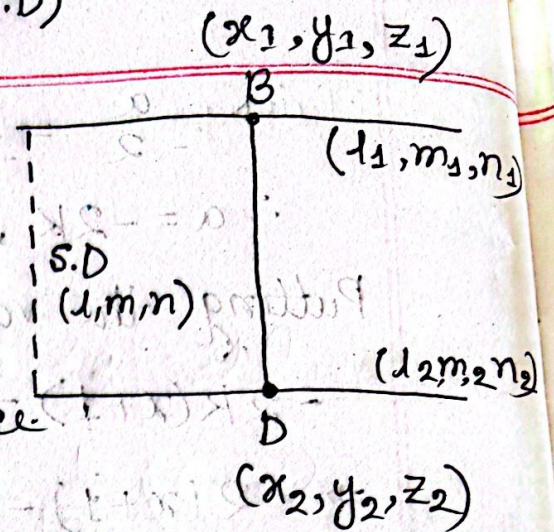 .D)
(x1, y1, z1)
B
(l1, m1, n1)
S.D
(l, m, n)
(l2 m, 2 n2)
D
(x2, y2, z2)